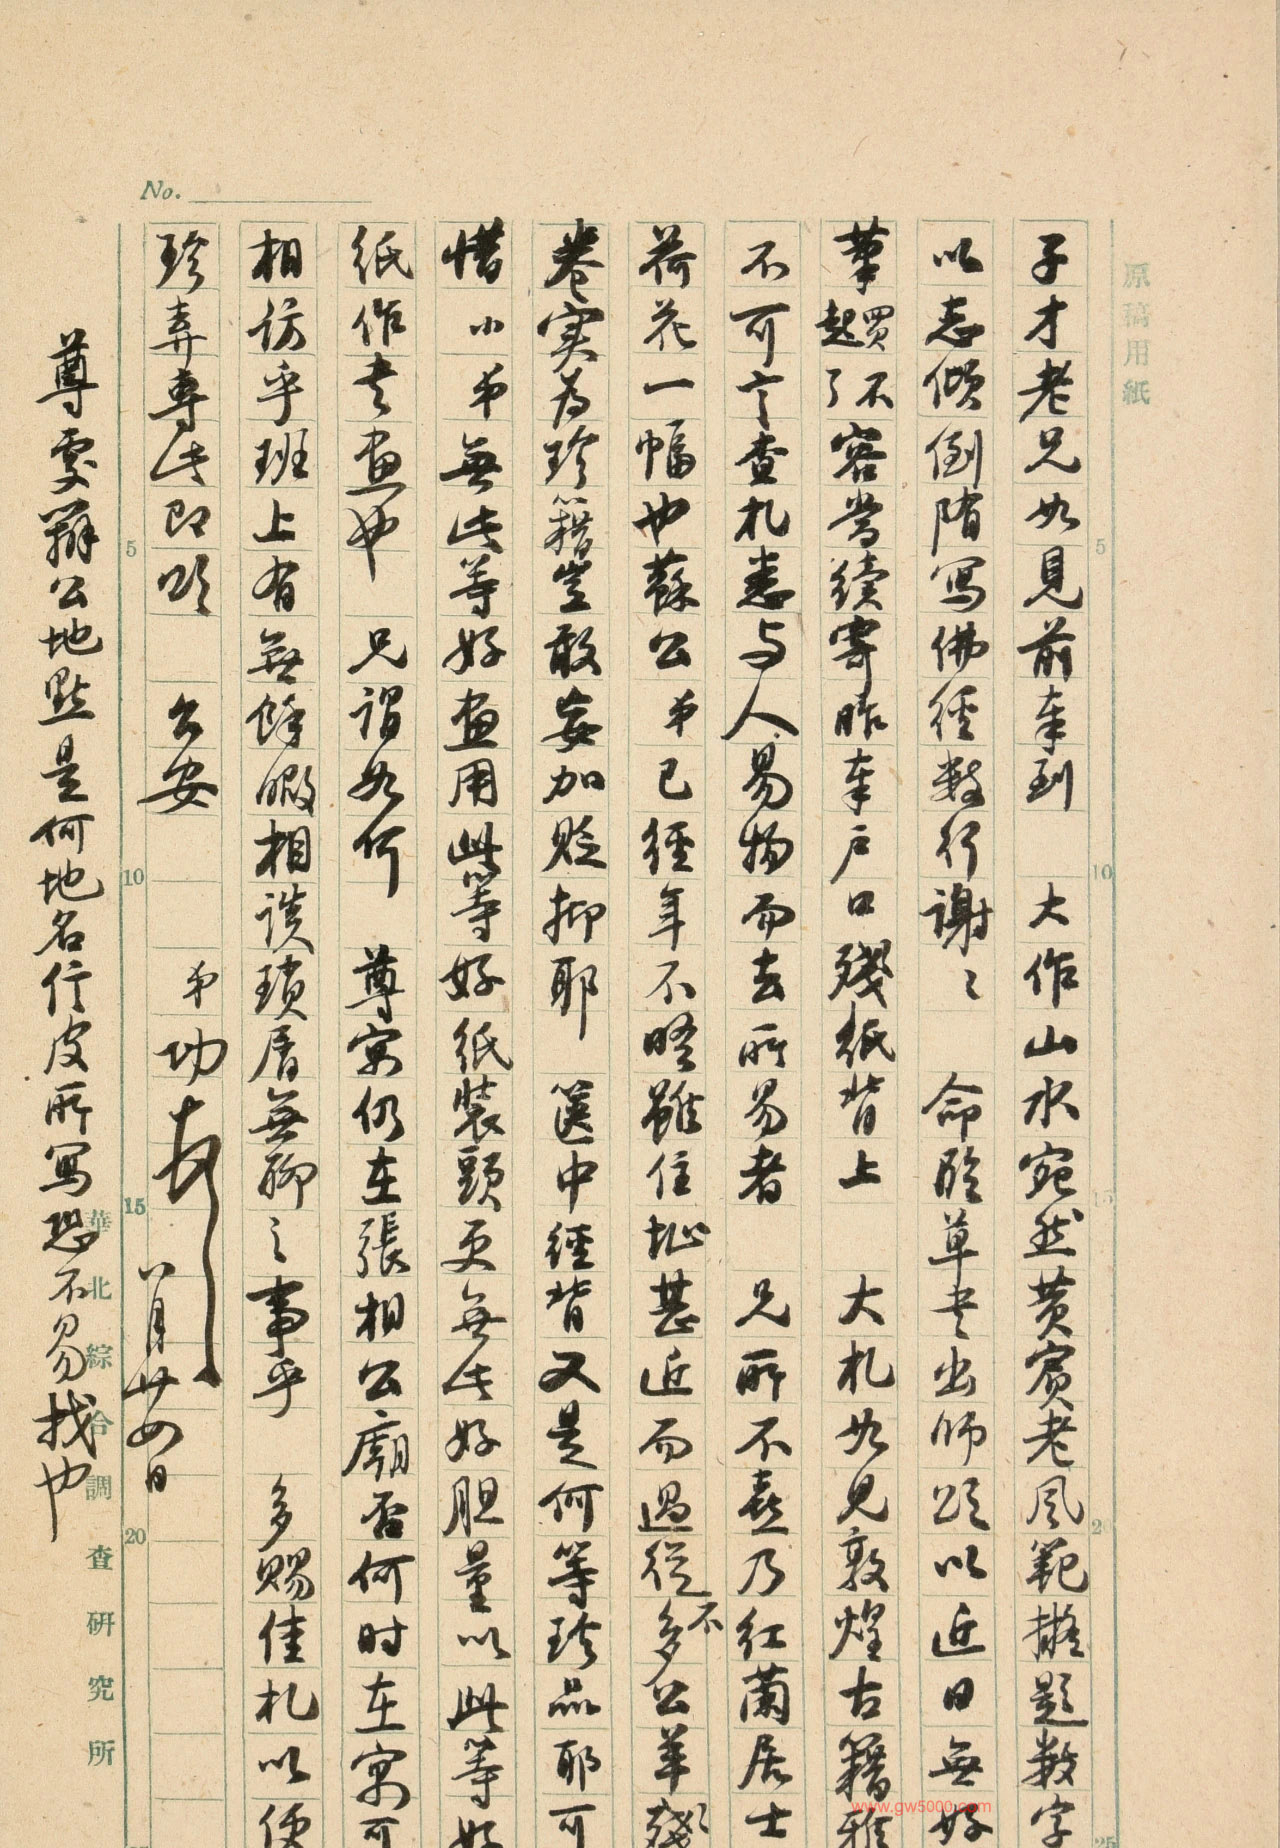 原稿用紙
No.
子才老兄如見前奉到 大作山水宛然黄賓老風範擬題数字
以志傾倒隋寫佛經数行謝〻 命臨草书出師頌以近日無好
筆買不起了容当續寄昨奉户口殘紙背上 大札如見敦煌古籍雅
不可言查札悉与人易物而去所易者 兄所不喜乃紅蘭居士
荷花一幅也蘇公弟已經年不晤雖住址甚近而過從不多公羊殘
卷实为珍籍豈敢妄加貶抑耶 篋中經背又是何等珍品耶可
惜小弟無此等好画用此等好紙裝頭更無此好胆量以此等好
紙作书画也 兄謂如何 尊寓仍在張相公廟否何时在寓可
相訪乎班上有無餘暇相談瑣屑無聊之事乎 多賜佳札以便
珍弄專此即頌 公安 弟功 八月廿四日
尊處辦公地點是何地名信皮所寫恐不易找也
5
10
15
20
5
10
15
20
25
華北綜合調查研究所
www.gw5000.com